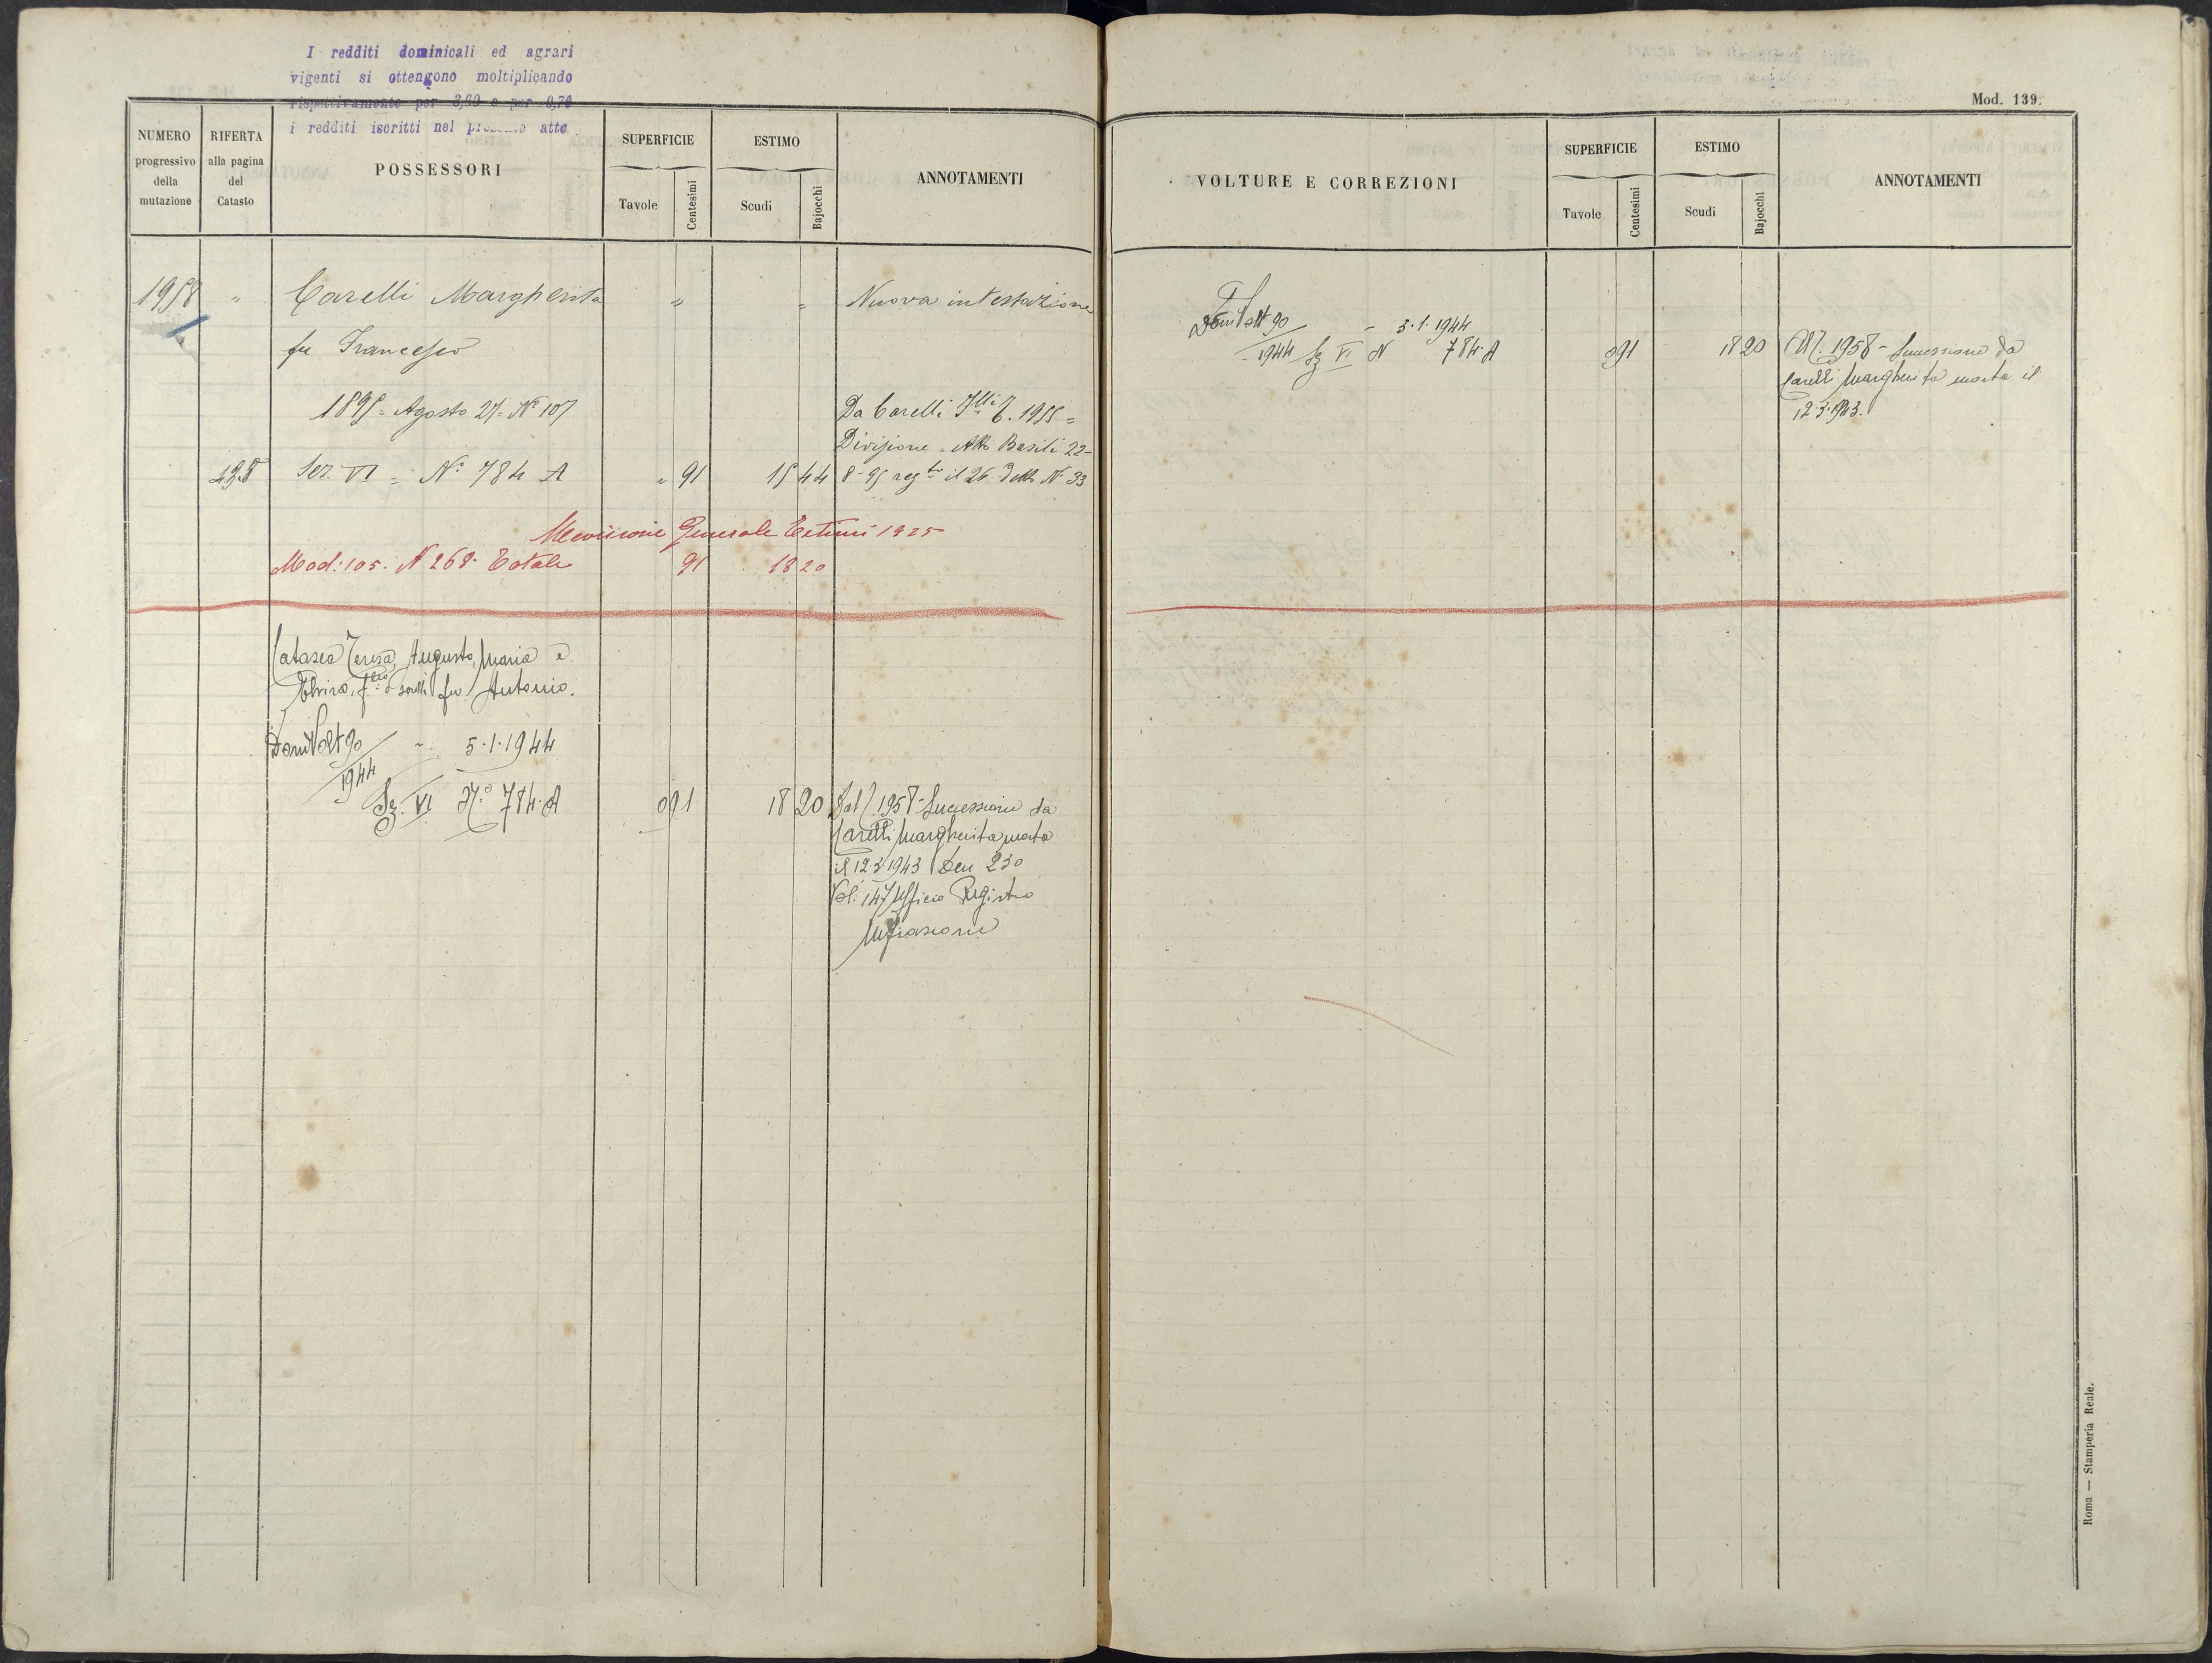 I redditi dominicali ed agrari
vigenti si ottengono moltiplicando
rispettivamente per 3,60 e per 0,70
i redditi iscritti nel presente atto
NUMERO
progressivo
della
mutazione
RIFERTA
alla pagina
del
Catasto
POSSESSORI
SUPERFICIE
Tavole
Centesimi
ESTIMO
Scudi
Bajocchi
ANNOTAMENTI
1958 " Carelli Margherita " " Nuova intestazione
fu Francesco
1895 = Agosto 27 = Nº 107 Da Carelli Flli 1955 =
Divisione = Atto Basili 22-
Sez. VI = Nº 784 A " 91 15 44 8-95 regto il 26 detto Nº 33
Revisione Generale Estimi 1925
Mod: 105. N 268. Totale 91 18 20
Catasca Teresa, Augusto, Maria e
Elvira, flli e sorelle fu Antonio.
Dom Volt 90 5.1.1944
1944
Sz. VI Nº 784.A 0 91 18 20 Dal 1958 - Successione da
Carelli Margherita morta
il 12.3.1943 Den 230
Vol. 147 Ufficio Registro
Mod. 139.
VOLTURE E CORREZIONI
SUPERFICIE
Tavole
Centesimi
ESTIMO
Scudi
Bajocchi
ANNOTAMENTI
Dom Volt 90 - 3.1.1944
1944 Sz VI N 784.A 0 91 18 20 1958 - Successione da
Carelli Margherita morta il
12.3.1943.
Roma — Stamperia Reale.